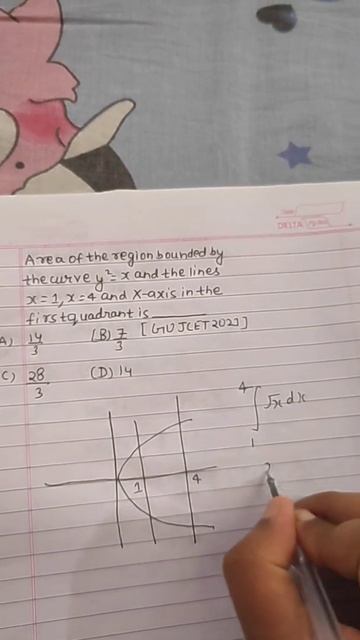 DELTA
Area of the region bounded by
the curve y² = x and the lines
x = 1, x = 4 and X-axis in the
first quadrant is ______
A) 14/3 (B) 7/3 [GUJCET 2021]
C) 28/3 (D) 14
4
∫ √x dx
1
1 4